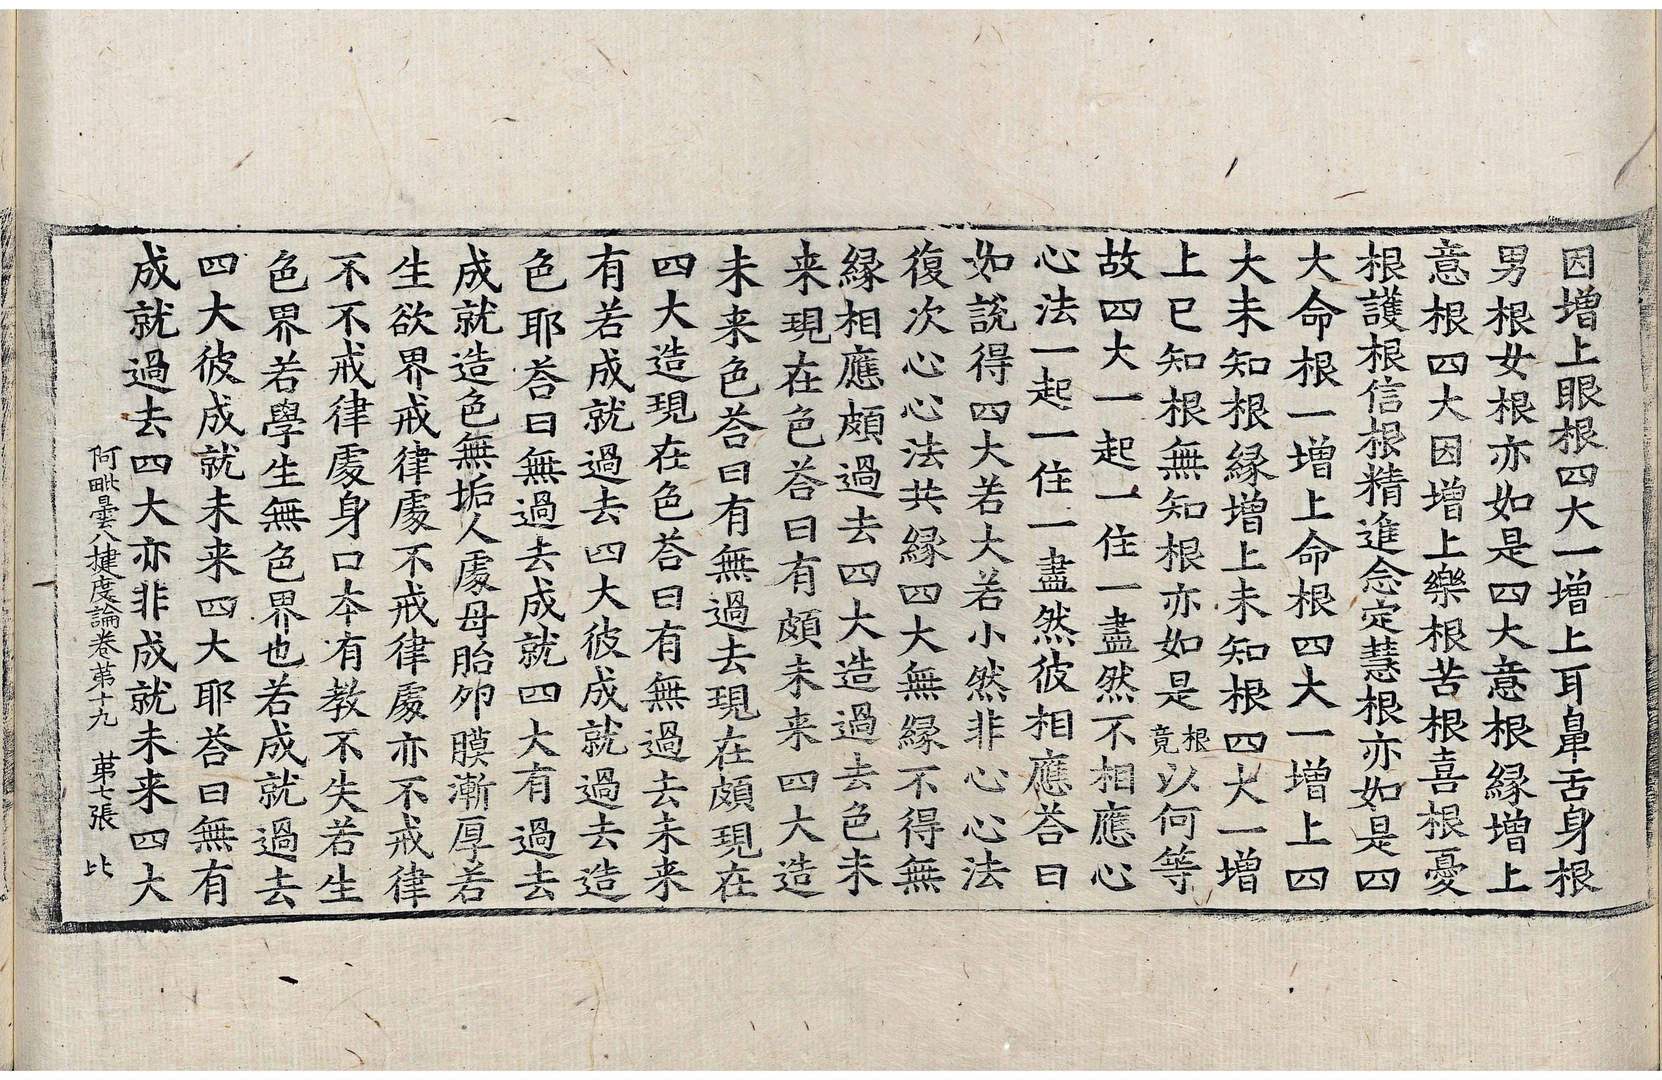 因增上眼根四大一增上耳鼻舌身根
男根女根亦如是四大意根緣增上
意根四大因增上樂根苦根喜根憂
根護根信根精進念定慧根亦如是四
大命根一增上命根四大一增上四
大未知根緣增上未知根四大一增
上已知根無知根亦如是根竟以何等
故四大一起一住一盡然不相應心
心法一起一住一盡然彼相應荅曰
如說得四大若大若小然非心心法
復次心心法共緣四大無緣不得無
緣相應頗過去四大造過去色未
来現在色荅曰有頗未来四大造
未来色荅曰有無過去現在頗現在
四大造現在色荅曰有無過去未来
有若成就過去四大彼成就過去造
色耶荅曰無過去成就四大有過去
成就造色無垢人處母胎夘膜漸厚若
生欲界戒律處不戒律處亦不戒律
不不戒律處身口本有教不失若生
色界若學生無色界也若成就過去
四大彼成就未来四大耶荅曰無有
成就過去四大亦非成就未来四大
阿毗曇八揵度論卷第十九 第七張 比